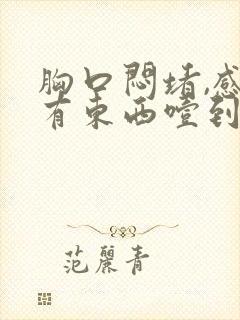 胸口悶堵,感
有東西噎到
范麗青